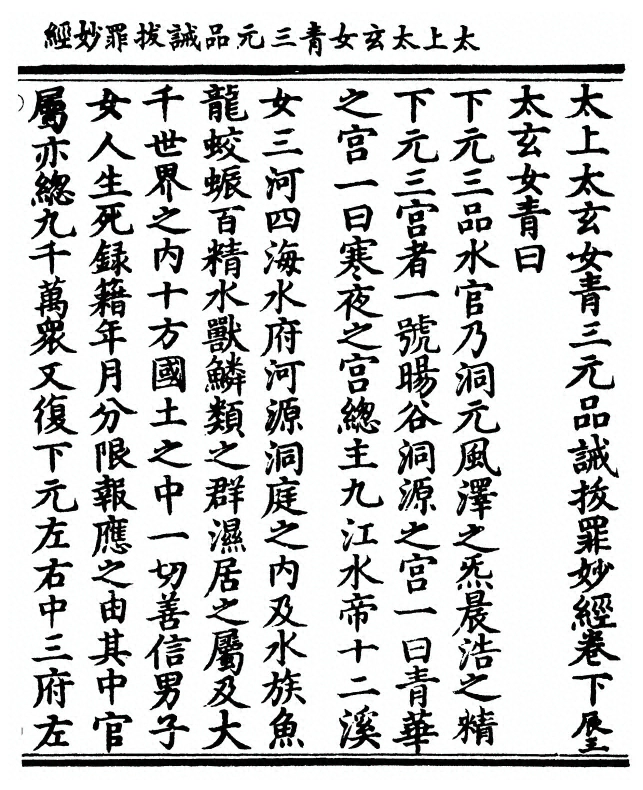 太上太玄女青三元品誡拔罪妙經
太上太玄女青三元品誡拔罪妙經卷下
太玄女青曰
下元三品水官乃洞元風澤之炁晨浩之精
下元三宮者一號暘谷洞源之宮一曰青華
之宮一曰寒夜之宮總主九江水帝十二溪
女三河四海水府河源洞庭之內及水族魚
龍蛟蜃百精水獸鱗類之群濕居之屬及大
千世界之內十方國土之中一切善信男子
女人生死録籍年月分限報應之由其中官
屬亦總九千萬眾又復下元左右中三府左